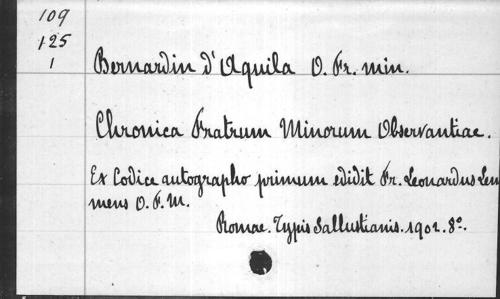 109
125
1
Bernardin d'Aquila O. Fr. min.
Chronica Fratrum Minorum Observantiae.
Ex Codice autographo primum edidit Fr. Leonardus Lem
mens O. F. M.
Romae. Typis Sallustianis. 1902. 8°.